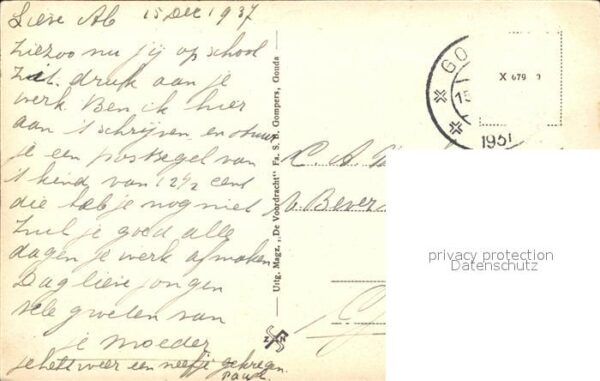 Lieve Ab 15 Dec 1937
Ziezoo nu jij op school
zit druk aan je
werk Ben ik hier
aan 't schrijven en stuur
je een postzegel van
't kind van 12 1/2 cent
die heb je nog niet
Zul je goed alle
dagen je werk afmaken
Dag lieve jongen
vele groeten van
je Moeder
je hebt weer een neefje gekregen
Paul
Uitg. Magz. „De Voordracht" Fa. S. B. Gompers, Gouda
GO
15
X 679 9
C. A.
privacy protection
Datenschutz